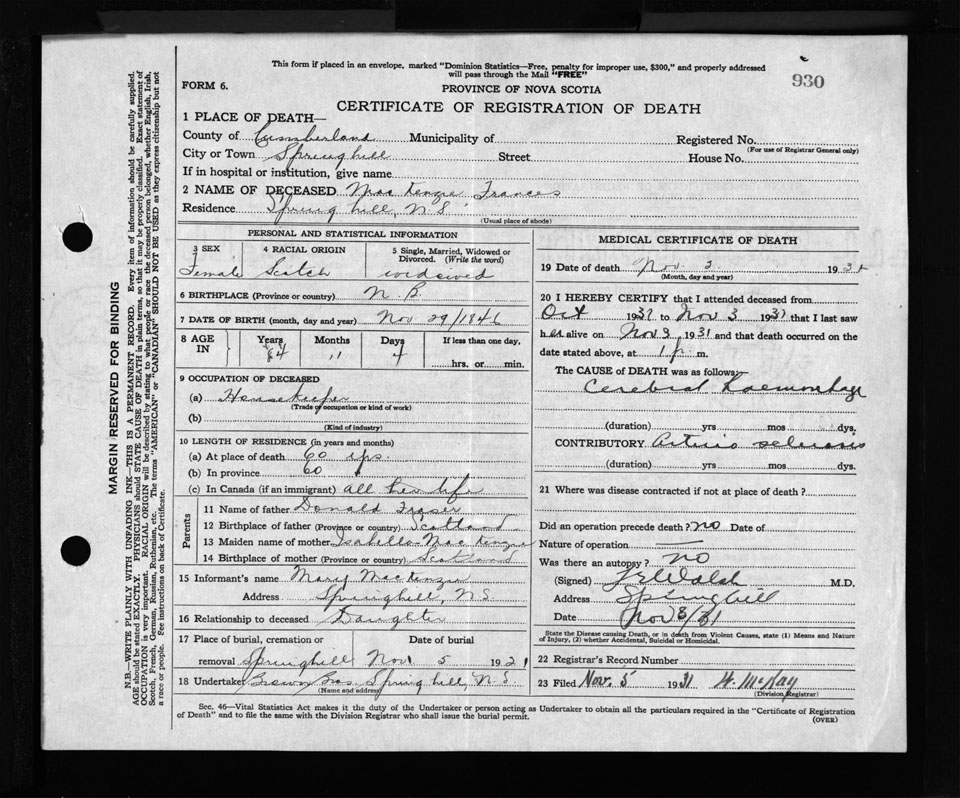 This form if placed in an envelope, marked "Dominion Statistics—Free, penalty for improper use, $300," and properly addressed
will pass through the Mail "FREE"
930
FORM 6.
PROVINCE OF NOVA SCOTIA
CERTIFICATE OF REGISTRATION OF DEATH
1 PLACE OF DEATH—
County of Cumberland Municipality of Registered No.
(For use of Registrar General only)
City or Town Springhill Street House No.
If in hospital or institution, give name
2 NAME OF DECEASED MacKenzie Frances
Residence Springhill, N.S.
(Usual place of abode)
PERSONAL AND STATISTICAL INFORMATION
3 SEX 4 RACIAL ORIGIN 5 Single, Married, Widowed or
Divorced. (Write the word)
Female Scotch widowed
6 BIRTHPLACE (Province or country) N.B.
7 DATE OF BIRTH (month, day and year) Nov 29/1846
8 AGE IN Years Months Days If less than one day,
84 11 4 hrs. or min.
9 OCCUPATION OF DECEASED
(a) Housekeeper
(Trade or occupation or kind of work)
(b)
(Kind of industry)
10 LENGTH OF RESIDENCE (in years and months)
(a) At place of death 60 yrs.
(b) In province 60
(c) In Canada (if an immigrant) all her life
Parents
11 Name of father Donald Fraser
12 Birthplace of father (Province or country) Scotland
13 Maiden name of mother Isabella MacKenzie
14 Birthplace of mother (Province or country) Scotland
15 Informant's name Mary MacKenzie
Address Springhill, N.S.
16 Relationship to deceased Daughter
17 Place of burial, cremation or Date of burial
removal Springhill Nov 5 1921
18 Undertaker Brown Bros. Springhill, N.S.
(Name and address)
MEDICAL CERTIFICATE OF DEATH
19 Date of death Nov. 3 1931
(Month, day and year)
20 I HEREBY CERTIFY that I attended deceased from
Oct 1931 to Nov 3 1931 that I last saw
her alive on Nov 3 1931 and that death occurred on the
date stated above, at 1 p. m.
The CAUSE of DEATH was as follows:
Cerebral haemorrhage
(duration) yrs mos dys.
CONTRIBUTORY Arterio sclerosis
(duration) yrs mos dys.
21 Where was disease contracted if not at place of death?
Did an operation precede death? no Date of
Nature of operation —
Was there an autopsy? no
(Signed) Walsh M.D.
Address Springhill
Date Nov 3/31
State the Disease causing Death, or in death from Violent Causes, state (1) Means and Nature
of Injury, (2) whether Accidental, Suicidal or Homicidal.
22 Registrar's Record Number
23 Filed Nov. 5 1931 McKay
(Division Registrar)
Sec. 46—Vital Statistics Act makes it the duty of the Undertaker or person acting as Undertaker to obtain all the particulars required in the "Certificate of Registration
of Death" and to file the same with the Division Registrar who shall issue the burial permit.
(OVER)
MARGIN RESERVED FOR BINDING
N.B.—WRITE PLAINLY WITH UNFADING INK—THIS IS A PERMANENT RECORD. Every item of information should be carefully supplied.
AGE should be stated EXACTLY. PHYSICIANS should STATE CAUSE OF DEATH in plain terms, so that it may be properly classified. Exact statement of
OCCUPATION is very important. RACIAL ORIGIN will be described by stating to what people or race the deceased person belonged, whether English, Irish,
Scotch, French, German, Russian, Ruthenian, etc. The terms "AMERICAN" or "CANADIAN" SHOULD NOT BE USED as they express citizenship but not
a race or people. See instructions on back of Certificate.